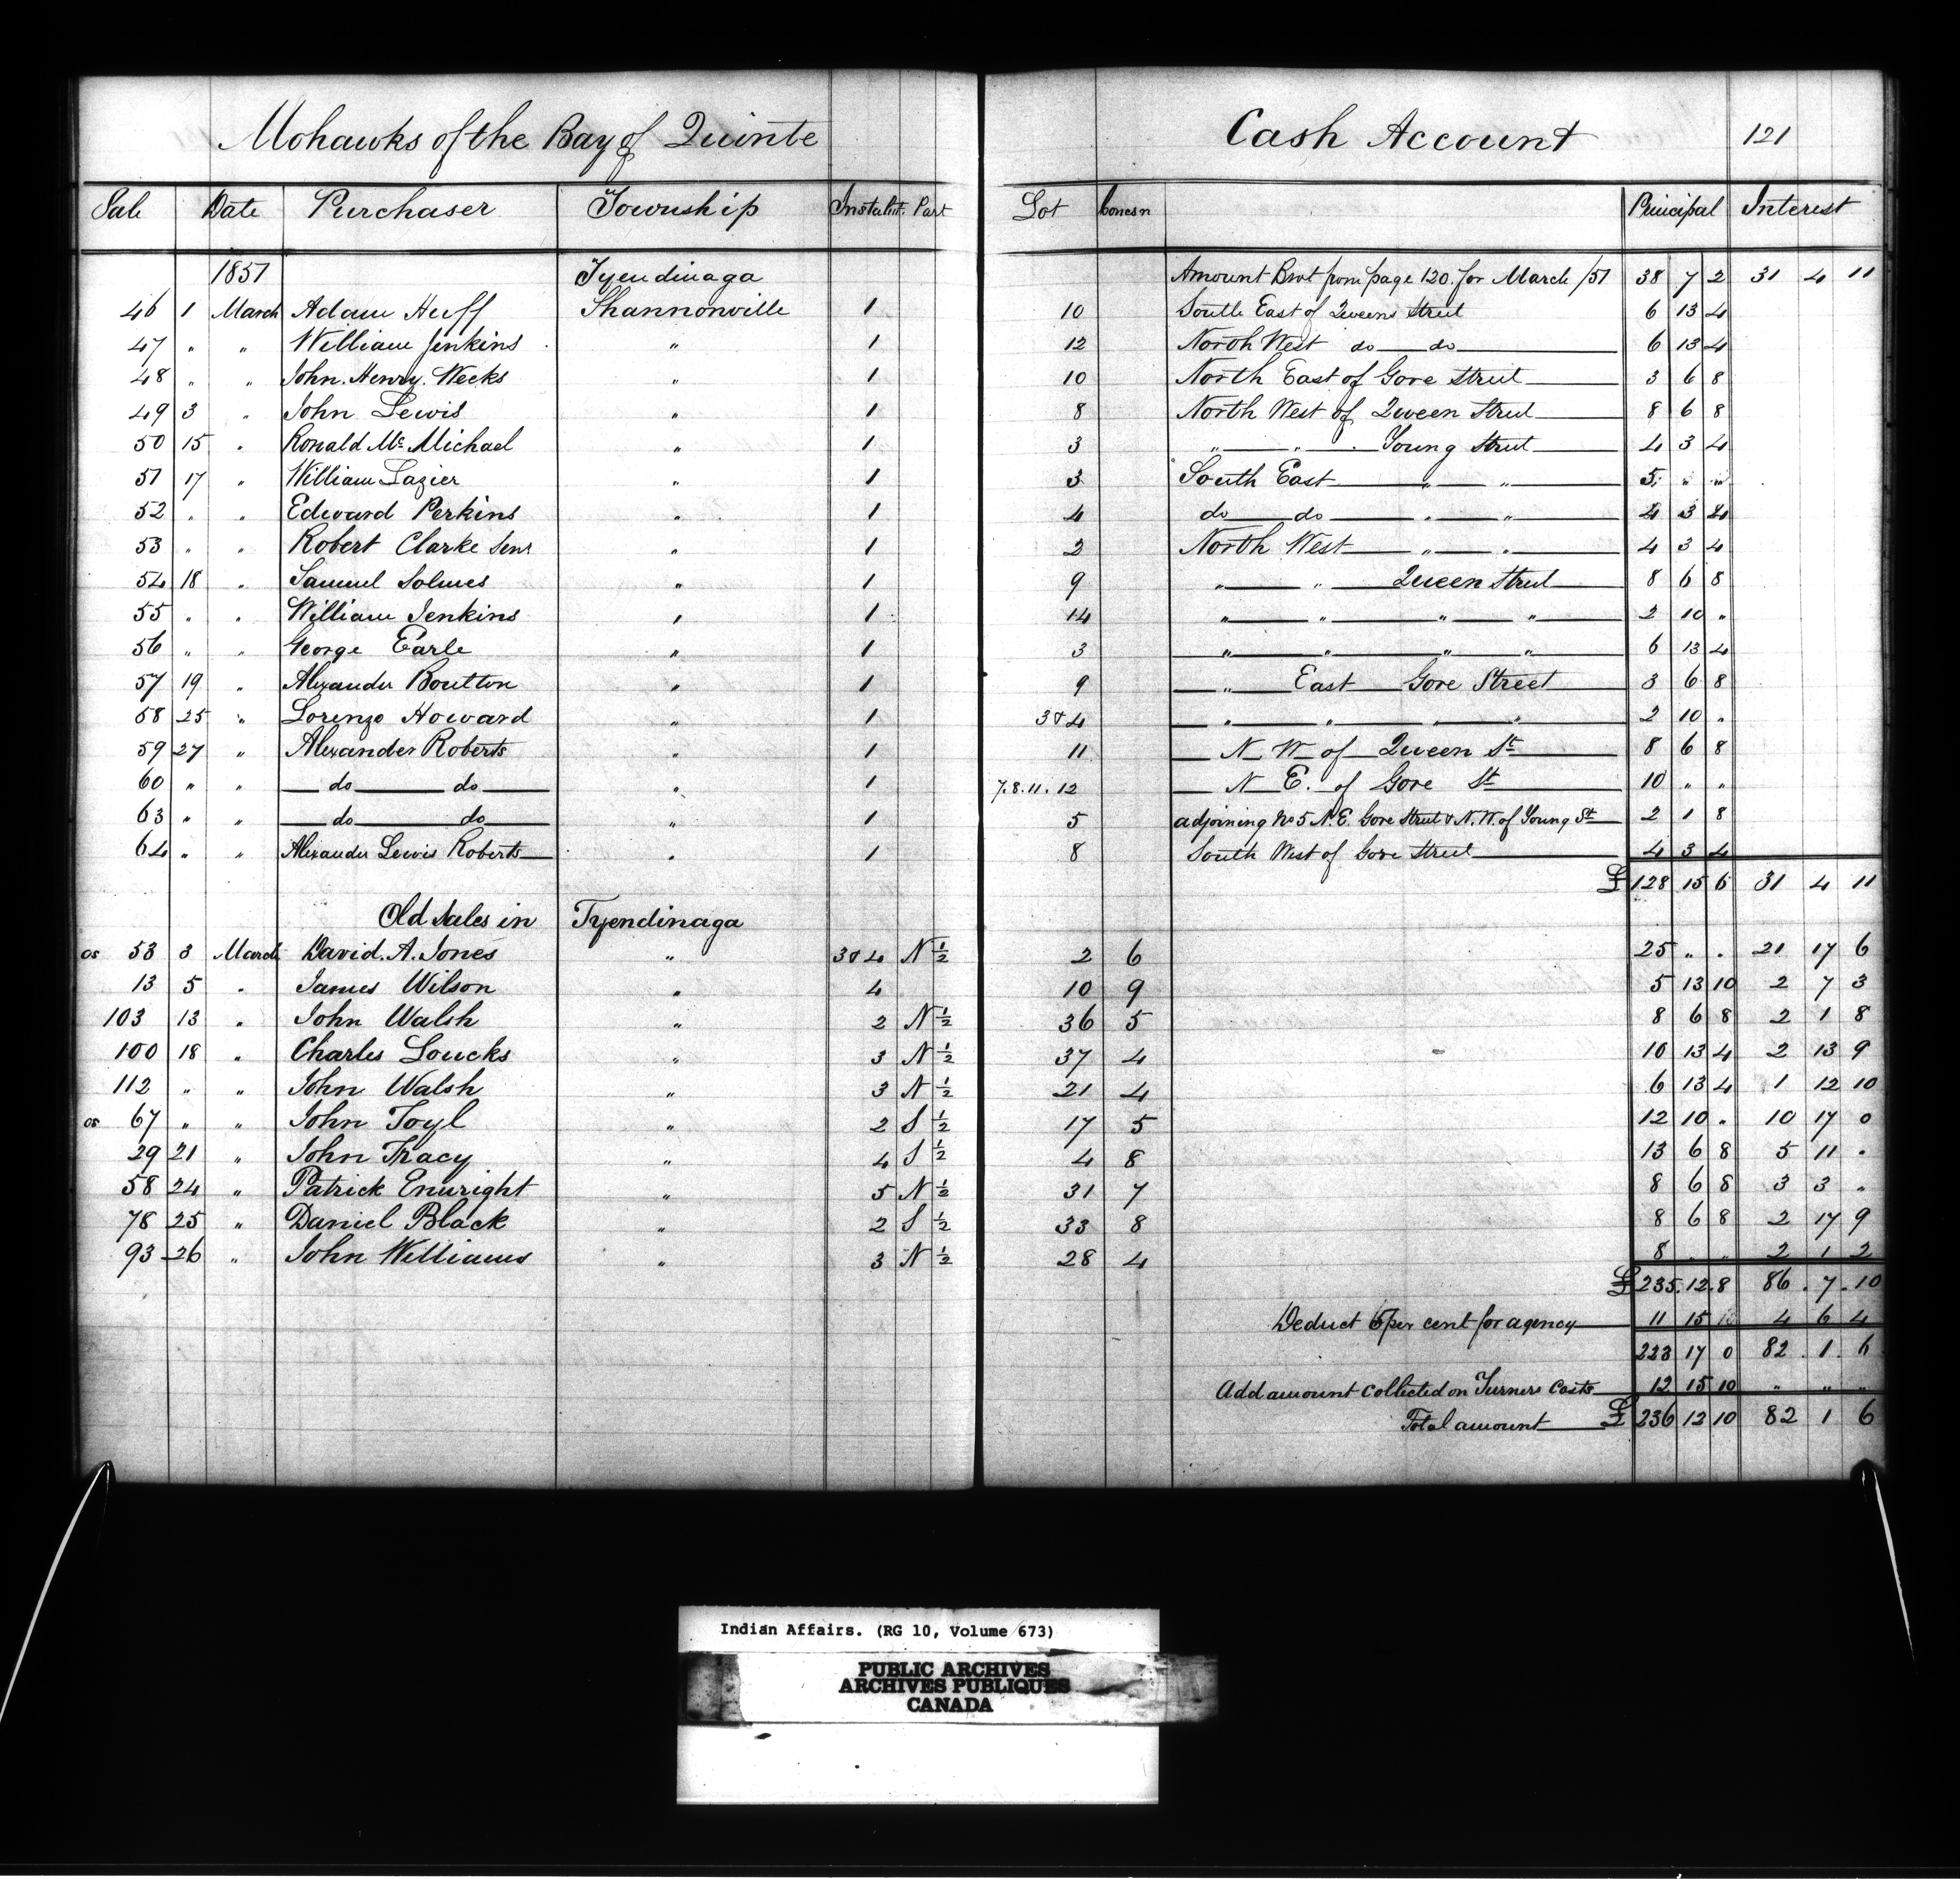 Mohawks of the Bay of Quinte Cash Account 121
Sale Date Purchaser Township Instalnt. Part Lot Concsn Principal Interest
1851 Tyendinaga Amount Brot from page 120 for March /51 38 7 2 31 4 11
46 1 March Adam Huff Shannonville 1 10 South East of Queens Street 6 13 4
47 " " William Jenkins " 1 12 North West do do 6 13 4
48 " " John. Henry. Weeks " 1 10 North East of Gore Street 3 6 8
49 3 " John Lewis " 1 8 North West of Queen Street 8 6 8
50 15 " Ronald Mc Michael " 1 3 " " Young Street 4 3 4
51 17 " William Lazier " 1 3 South East " " 5 " "
52 " " Edward Perkins " 1 4 do do " " 4 3 4
53 " " Robert Clarke Senr " 1 2 North West " " 4 3 4
54 18 " Samuel Solmes " 1 9 " " Queen Street 8 6 8
55 " " William Jenkins " 1 14 " " " " 2 10 "
56 " " George Earle " 1 3 " " " " 6 13 4
57 19 " Alexander Boulton " 1 9 " East Gore Street 3 6 8
58 25 " Lorenzo Howard " 1 3 & 4 " " " " 2 10 "
59 27 " Alexander Roberts " 1 11 N W of Queen St 8 6 8
60 " " do do " 1 7. 8. 11. 12 N E. of Gore St 10 " "
63 " " do do " 1 5 adjoining No 5 N.E. Gore Street & N.W. of Young St 2 1 8
64 " " Alexander Lewis Roberts " 1 8 South West of Gore Street 4 3 4
£ 128 15 6 31 4 11
Old Sales in Tyendinaga
os 53 3 March David. A. Jones " 3 & 4 N ½ 2 6 25 " " 21 17 6
13 5 " James Wilson " 4 10 9 5 13 10 2 7 3
103 13 " John Walsh " 2 N ½ 36 5 8 6 8 2 1 8
100 18 " Charles Loucks " 3 N ½ 37 4 10 13 4 2 13 9
112 " " John Walsh " 3 N ½ 21 4 6 13 4 1 12 10
os 67 " " John Toyl " 2 S ½ 17 5 12 10 " 10 17 0
29 21 " John Tracy " 4 S ½ 4 8 13 6 8 5 11 "
58 24 " Patrick Enuright " 5 N ½ 31 7 8 6 8 3 3 "
78 25 " Daniel Black " 2 S ½ 33 8 8 6 8 2 17 9
93 26 " John Williams " 3 N ½ 28 4 8 " " 2 1 2
£ 235. 12. 8 86. 7. 10
Deduct 5 per cent for agency 11 15 4 6 4
223 17 0 82. 1. 6
Add amount collected on Turners Costs 12 15 10 " " "
Total amount £ 236 12 10 82 1 6
Indian Affairs. (RG 10, Volume 673)
PUBLIC ARCHIVES
ARCHIVES PUBLIQUES
CANADA